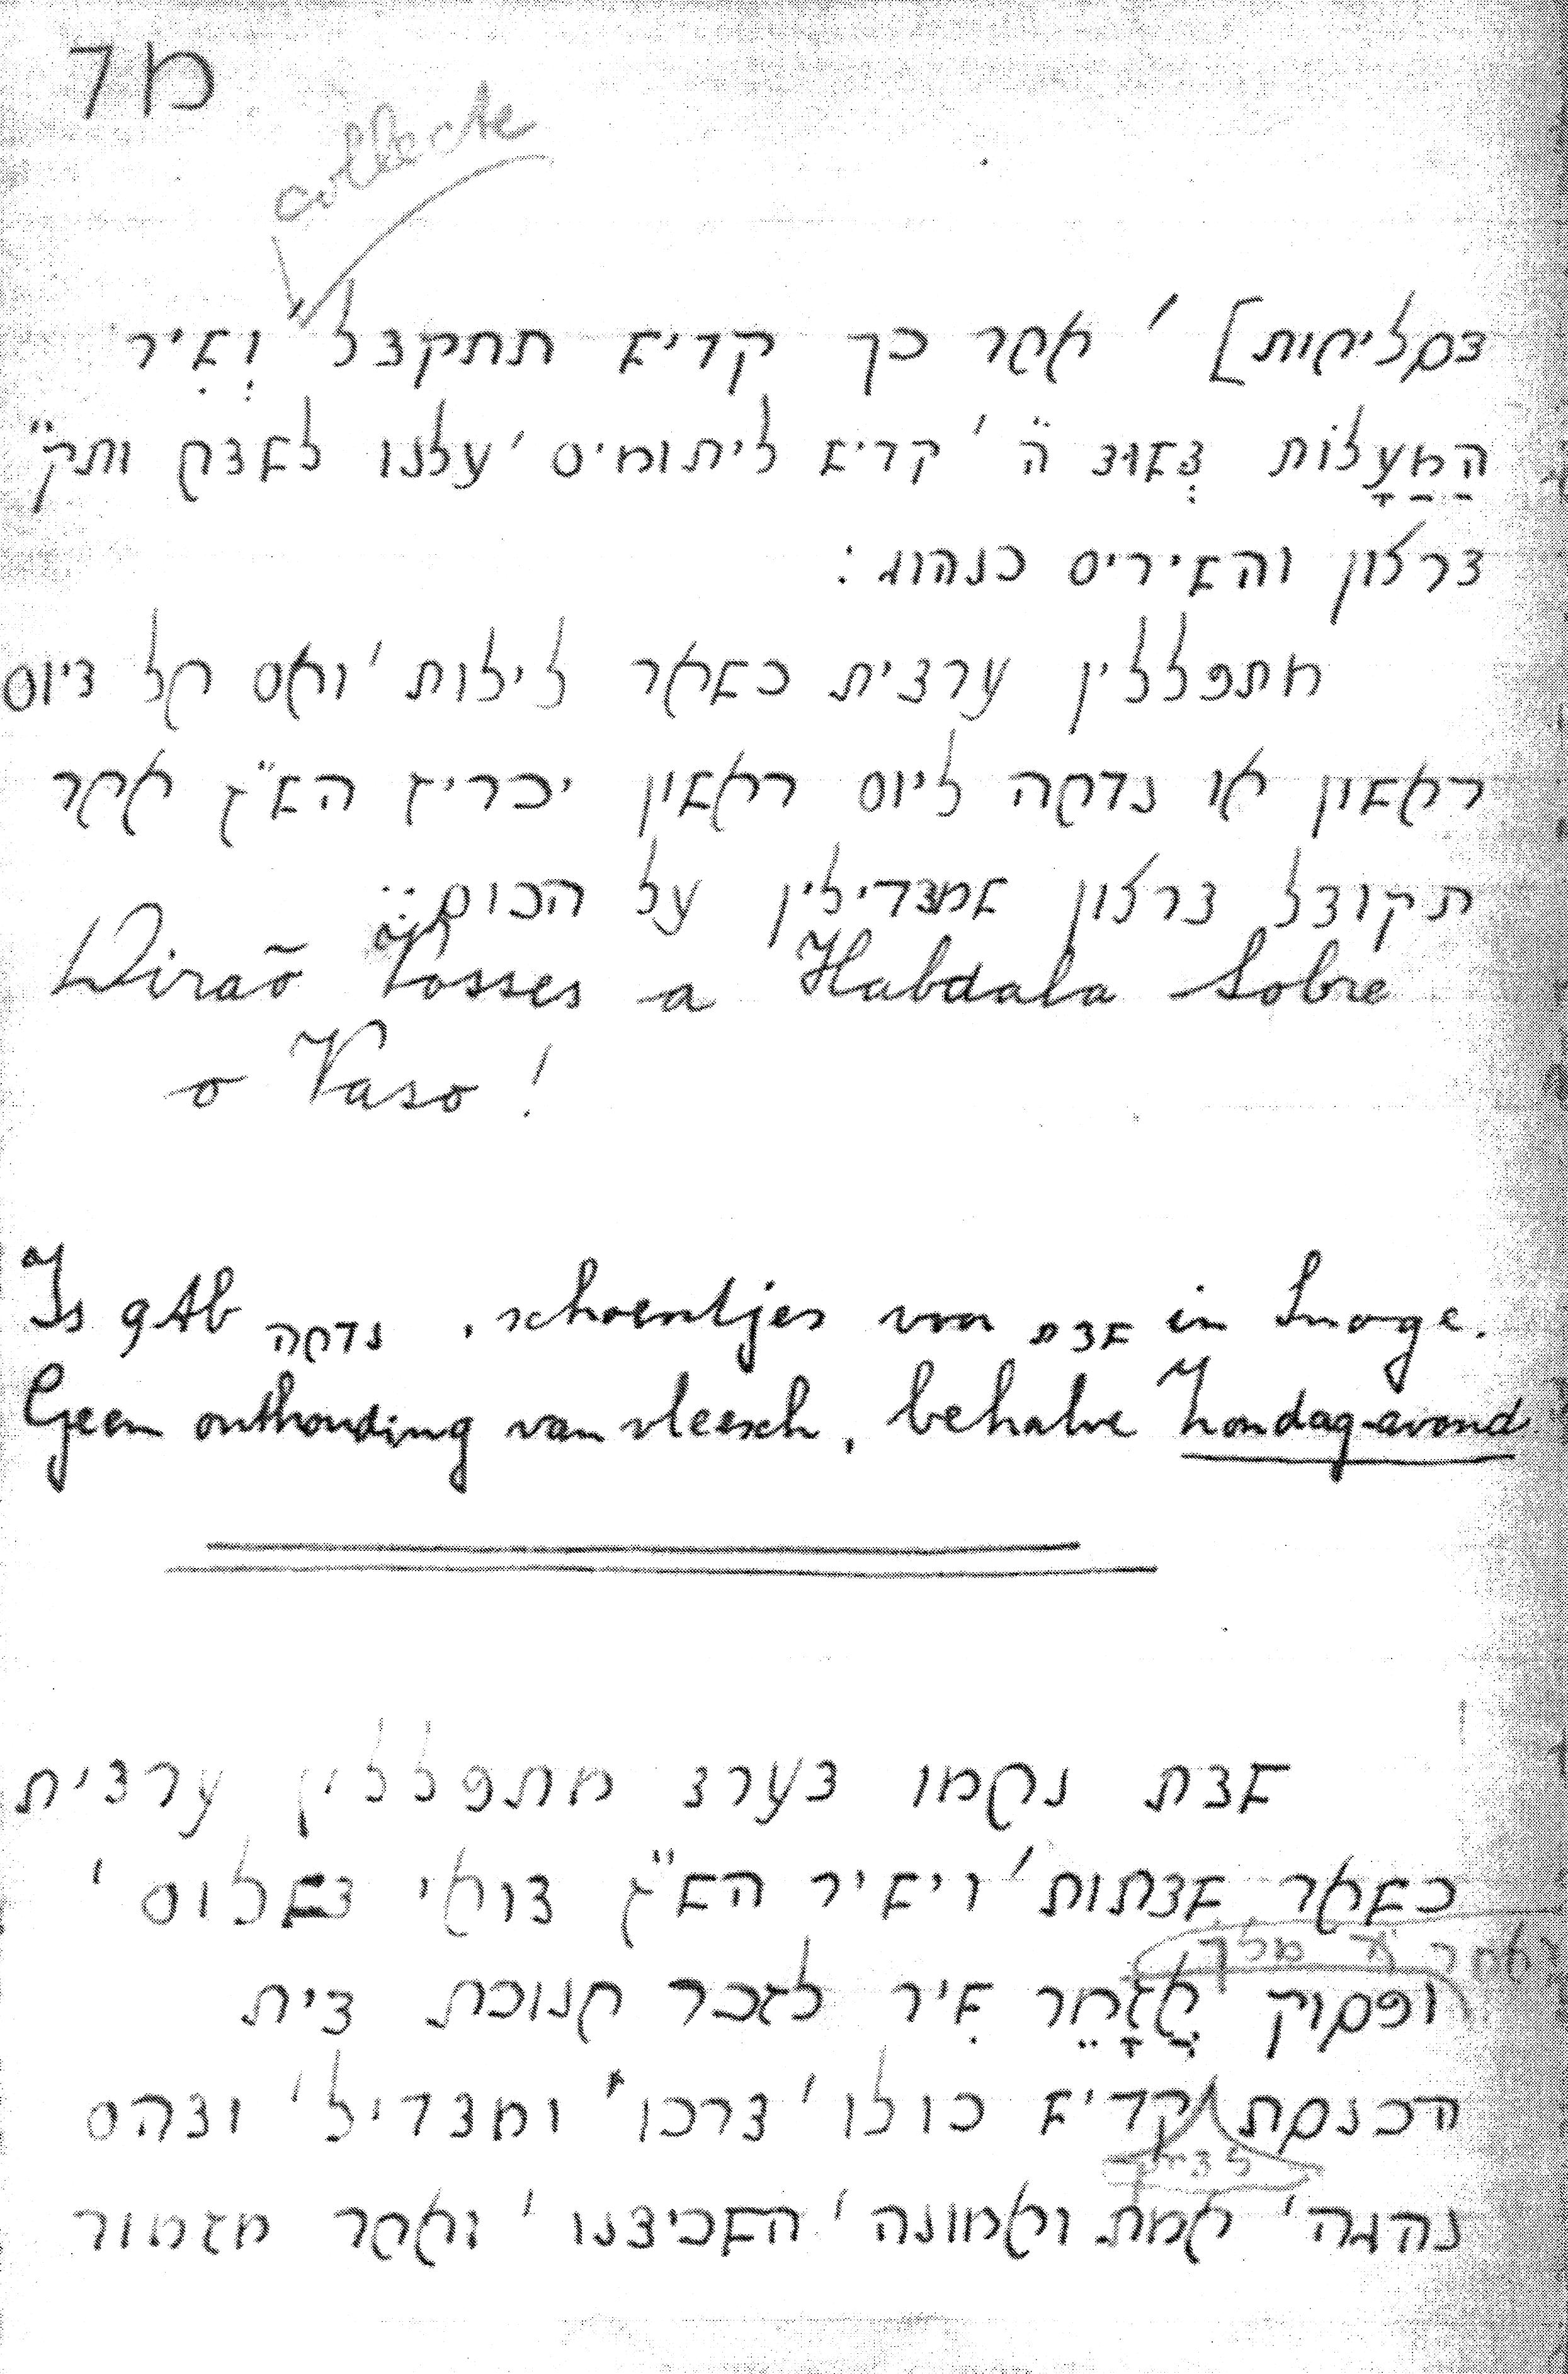 מד
collecte
בסליחות] ׳ אחר כך קדיש תתקבל וְשִׁיר
הַמַעָלוֹת בְּשׁוּב ה֞ ׳ קדיש ליתומים ׳ עלנו לשבח ותק״
ברצון והשירים כנהוג :
מתפללין ערבית כשאר לילות ׳ ואם חל ביום
ראשון או נדחה ליום ראשון יכריז הש״ץ אחר
תקובל ברצון שמבדילין על הכוס
Diraõ Vosses a Habdala Sobre
o Vaso !
Is 9 Ab נדחה, schoentjes voor שבת in Snoge.
Geen onthouding van vleesch, behalve Zondag-avond
שבת נחמו בערב מתפללין ערבית
כשאר שבתות ׳ וישיר הש״ץ בואי בשלום ׳
אחר ד׳ מלך
ופסוק אֲזַמֵר שִׁיר לזכר חנוכת בית
הכנסת קדיש כולו ׳ ברכו ׳ ומבדיל׳ ובהם
נהגה ׳ אמת ואמונה ׳ השכיבנו ׳ ואחר מזמור